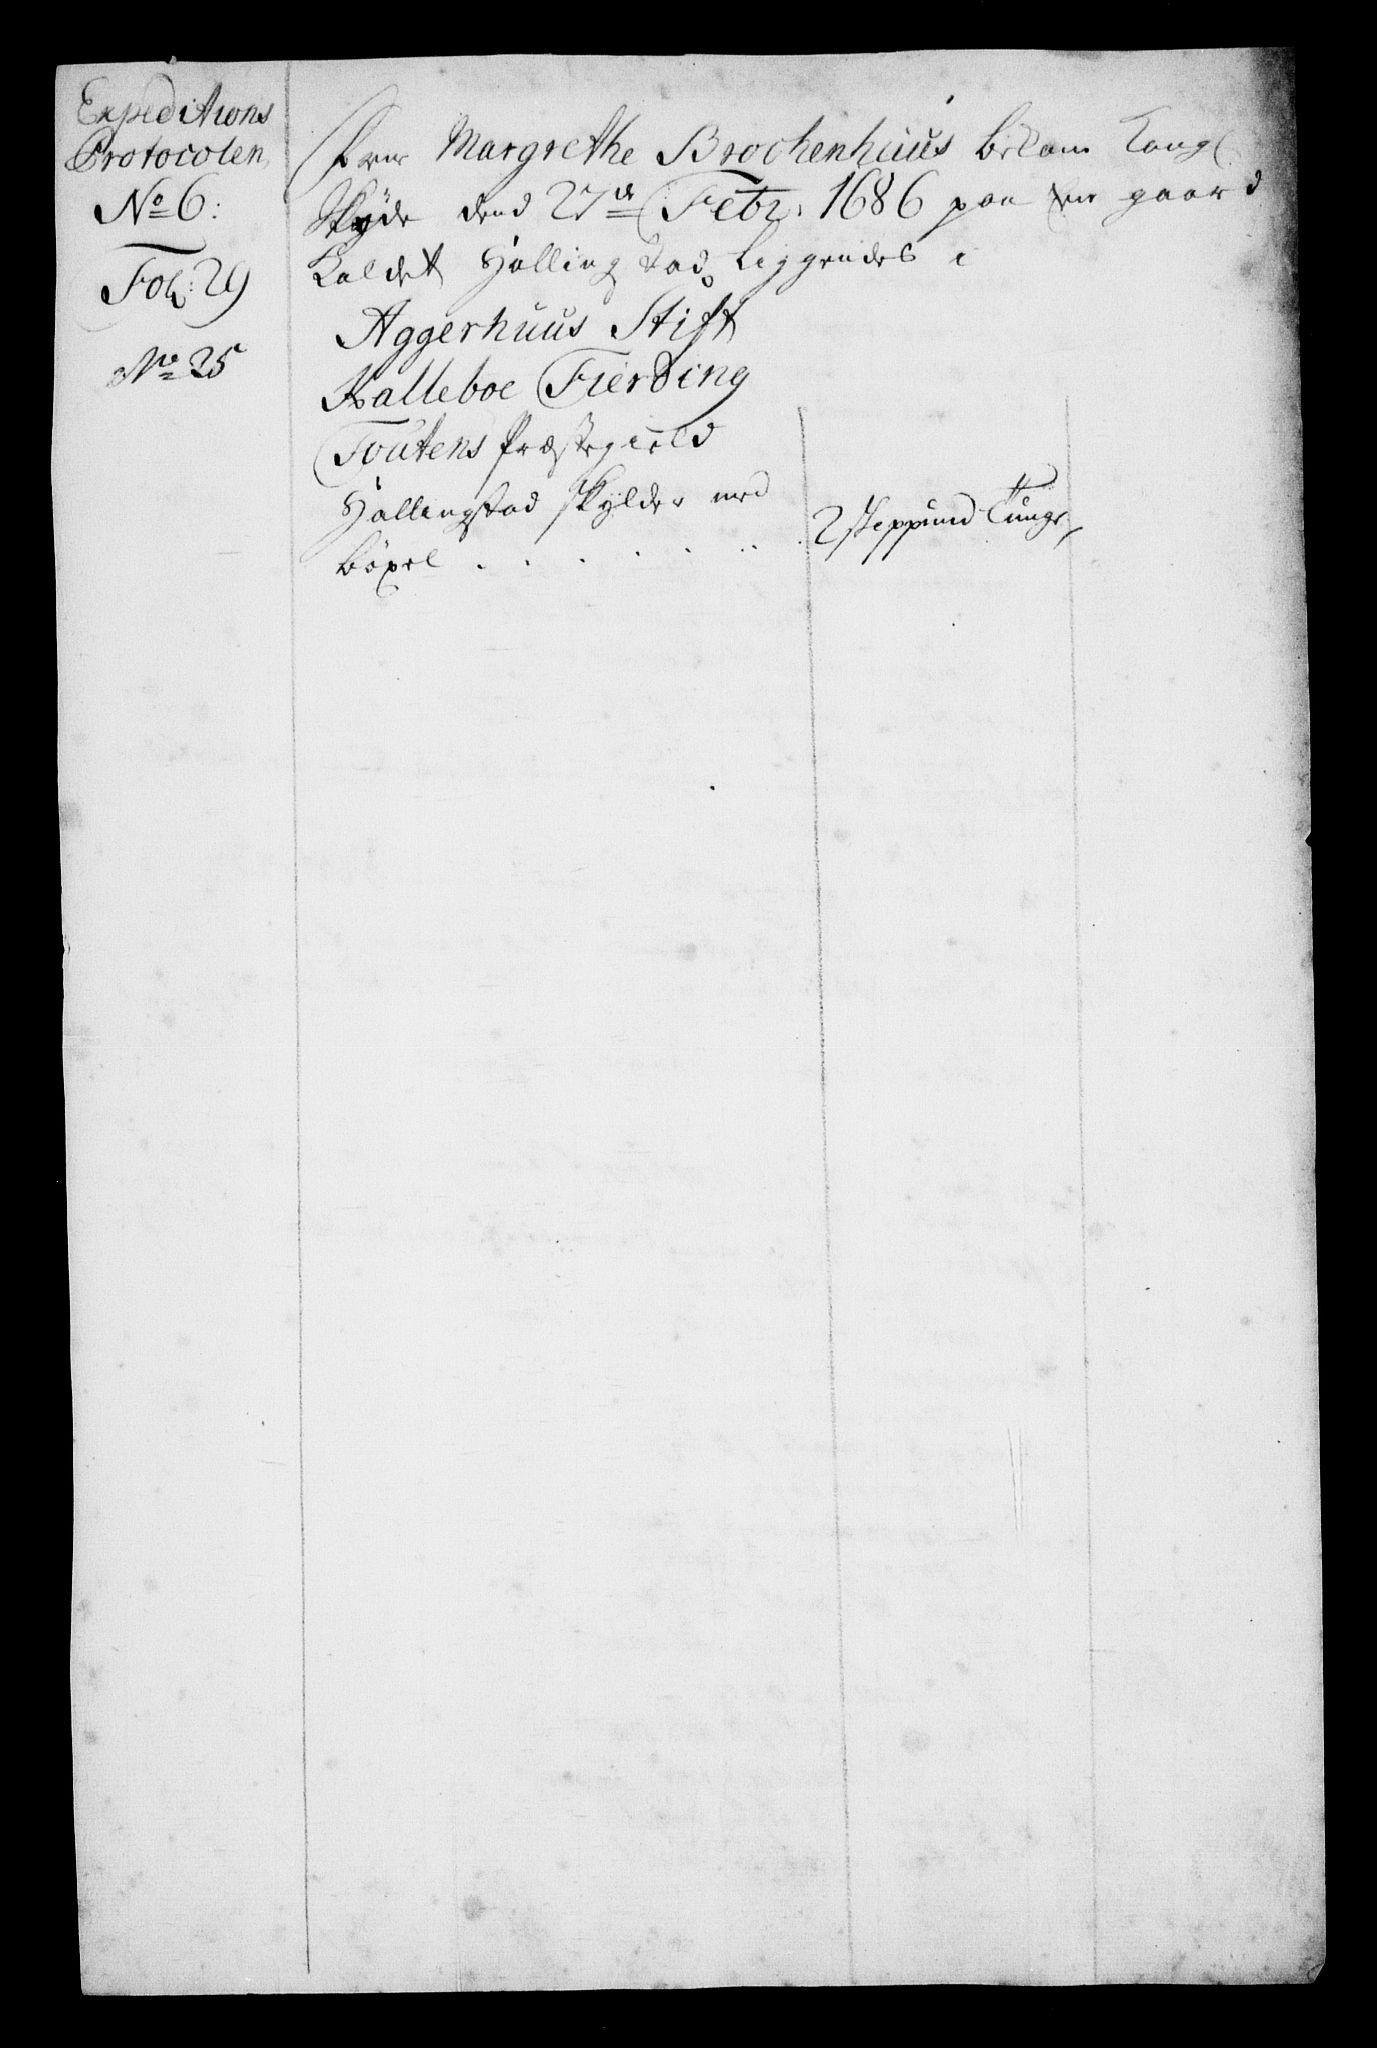 Expeditions
Protocolen
No 6:
Fol: 29
No 25
Frue Margrethe Brochenhuus bekom Kongl.
Skøde dend 27de Febr: 1686 paa en gaard
kaldet Hallingstad, liggendes i
Aggerhuus Stift
Kalleboe Fierding
Toutens Præstegield
Hallingstad skylder med
böxel . . . . . . . 2 skippund Tunge